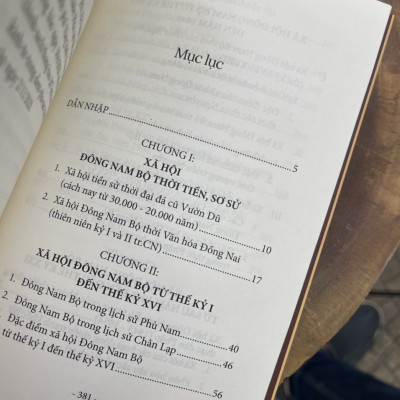 Mục lục
DẪN NHẬP ........ 5
CHƯƠNG I:
XÃ HỘI
ĐÔNG NAM BỘ THỜI TIỀN, SƠ SỬ
1. Xã hội tiền sử thời đại đá cũ Vườn Dũ
(cách nay từ 30.000 - 20.000 năm) ........ 10
2. Xã hội Đông Nam Bộ thời Văn hóa Đồng Nai
(thiên niên kỷ I và II tr.CN) ........ 17
CHƯƠNG II:
XÃ HỘI ĐÔNG NAM BỘ TỪ THẾ KỶ I
ĐẾN THẾ KỶ XVI
1. Đông Nam Bộ trong lịch sử Phù Nam ........ 40
2. Đông Nam Bộ trong lịch sử Chân Lạp ........ 46
3. Đặc điểm xã hội Đông Nam Bộ
từ thế kỷ I đến thế kỷ XVI ........ 56
- 381 -